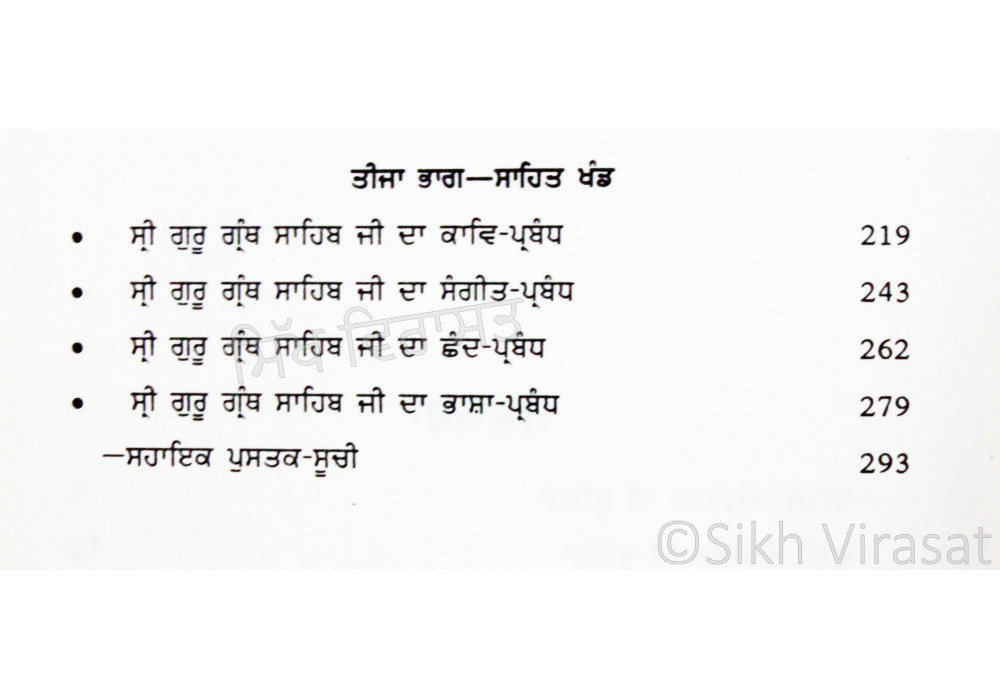 ਤੀਜਾ ਭਾਗ—ਸਾਹਿਤ ਖੰਡ
• ਸ੍ਰੀ ਗੁਰੂ ਗ੍ਰੰਥ ਸਾਹਿਬ ਜੀ ਦਾ ਕਾਵਿ-ਪ੍ਰਬੰਧ 219
• ਸ੍ਰੀ ਗੁਰੂ ਗ੍ਰੰਥ ਸਾਹਿਬ ਜੀ ਦਾ ਸੰਗੀਤ-ਪ੍ਰਬੰਧ 243
ਸਿੱਖ ਵਿਰਾਸਤ
• ਸ੍ਰੀ ਗੁਰੂ ਗ੍ਰੰਥ ਸਾਹਿਬ ਜੀ ਦਾ ਛੰਦ-ਪ੍ਰਬੰਧ 262
• ਸ੍ਰੀ ਗੁਰੂ ਗ੍ਰੰਥ ਸਾਹਿਬ ਜੀ ਦਾ ਭਾਸ਼ਾ-ਪ੍ਰਬੰਧ 279
—ਸਹਾਇਕ ਪੁਸਤਕ-ਸੂਚੀ 293
©Sikh Virasat